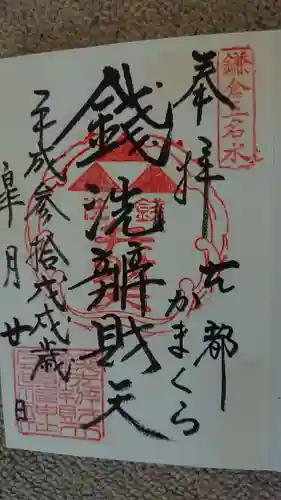 鎌倉五名水
奉拝
古都
かまくら
銭洗辨財天
平成参拾戊戌歳
皐月廿日